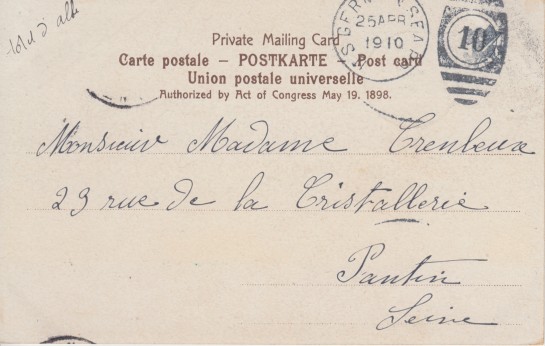 Private Mailing Card
Carte postale – POSTKARTE – Post card
Union postale universelle
Authorized by Act of Congress May 19. 1898.
25 APR
1910
10
Monsieur Madame Trenleux
23 rue de la Cristallerie
Pantin
Seine